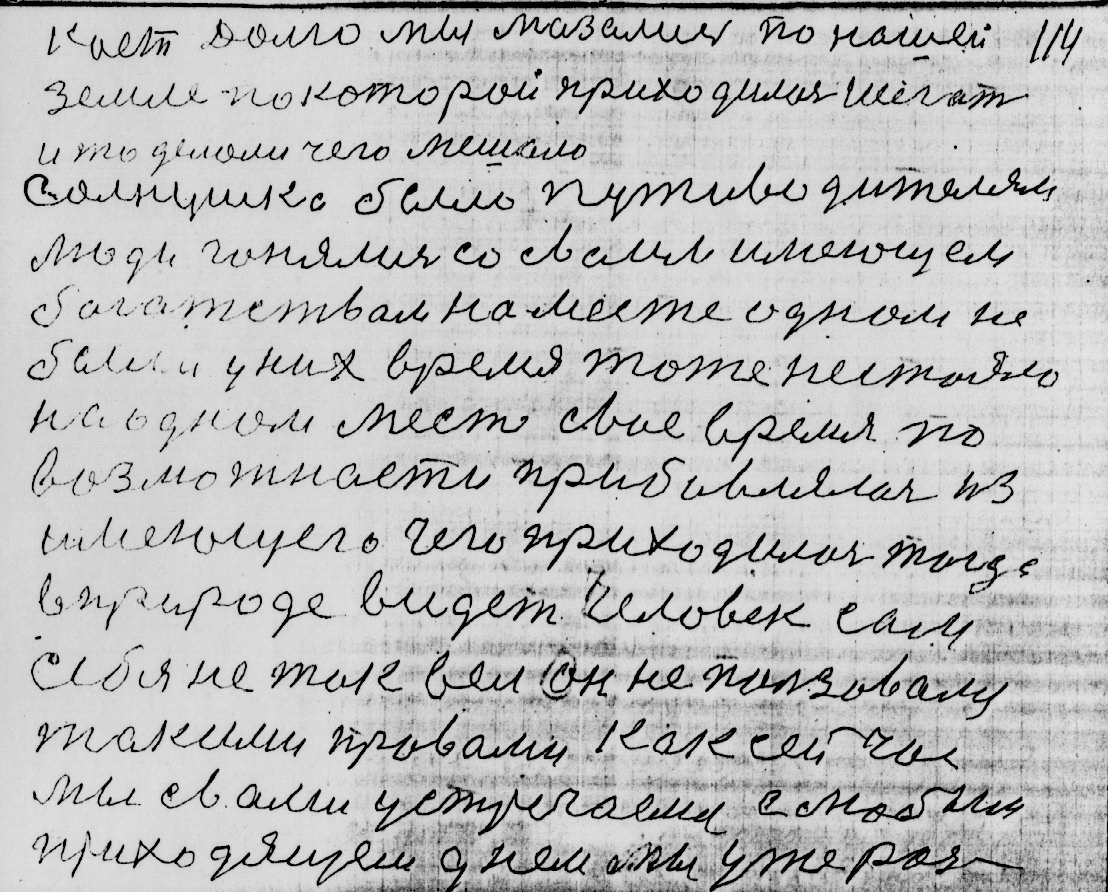 кает долго мы мазались по нашей 114
земле по которой приходилась шегат
и то делали чего мешало
Солнушко было путиводителям
люди гонялись со своим имеющем
богатствам на месте одном не
были у них время тоже нестаяло
на одном месте свое время по
возможности прибавлялая из
имеющего чего приходилая тогда
в природе видет человек сам
себя не так вел он не ползовалц
такими правами как сей час
мы с вами устречаемц с любым
приходящем днем мы уже раз-